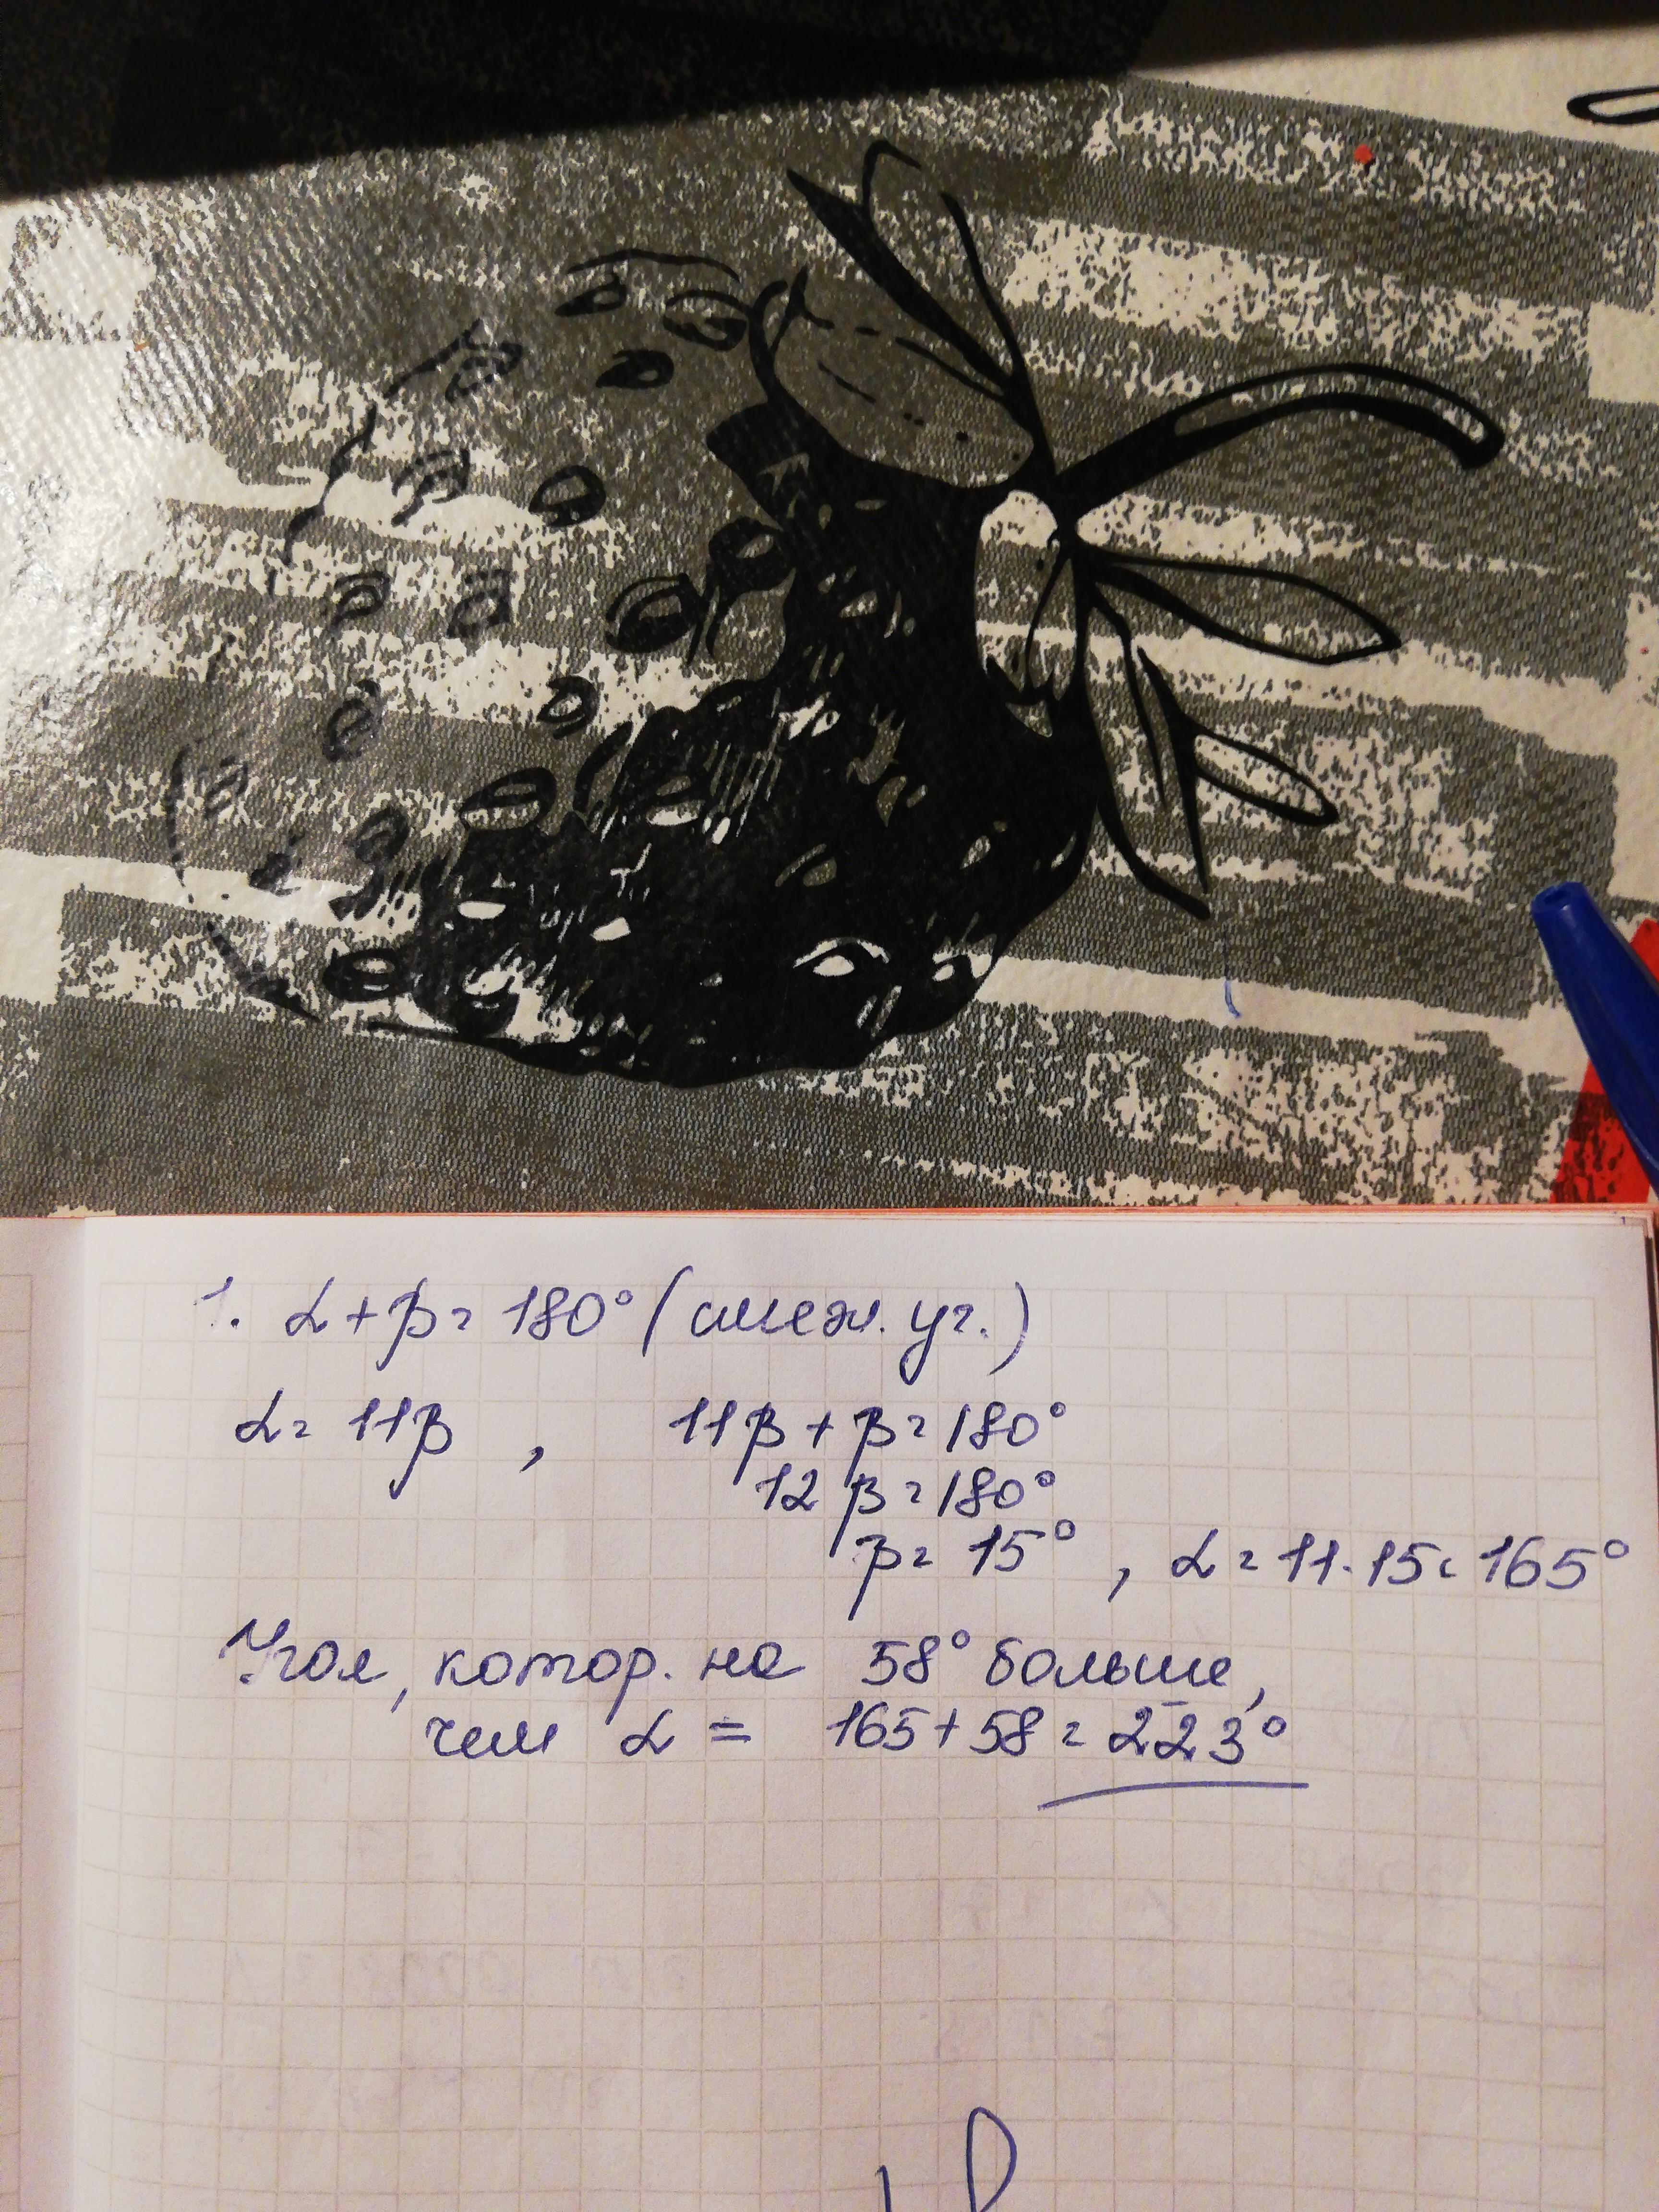 1. α + β = 180° (смеж. уг.)
α = 11β , 11β + β = 180°
12 β = 180°
β = 15° , α = 11·15 = 165°
Угол, котор. на 58° больше,
чем α = 165 + 58 = 223°